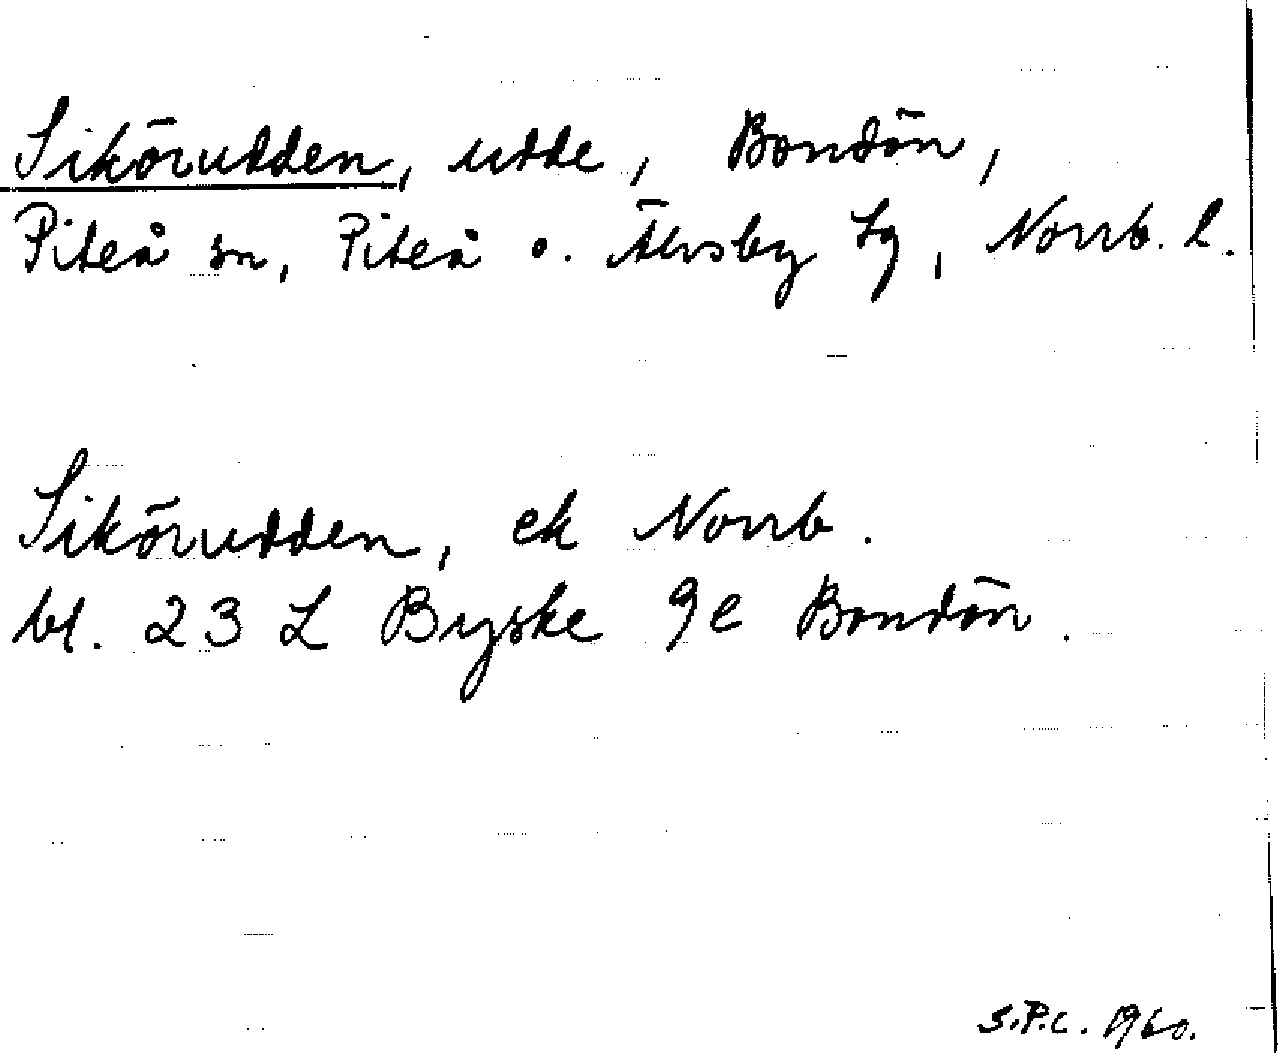 Sikörudden, udde, Bondön,
Piteå sn, Piteå o. Älvsby tg, Norrb. l.
Sikörudden, ek Norrb.
bl. 23 L Byske 9e Bondön.
S.P.C. 1960.